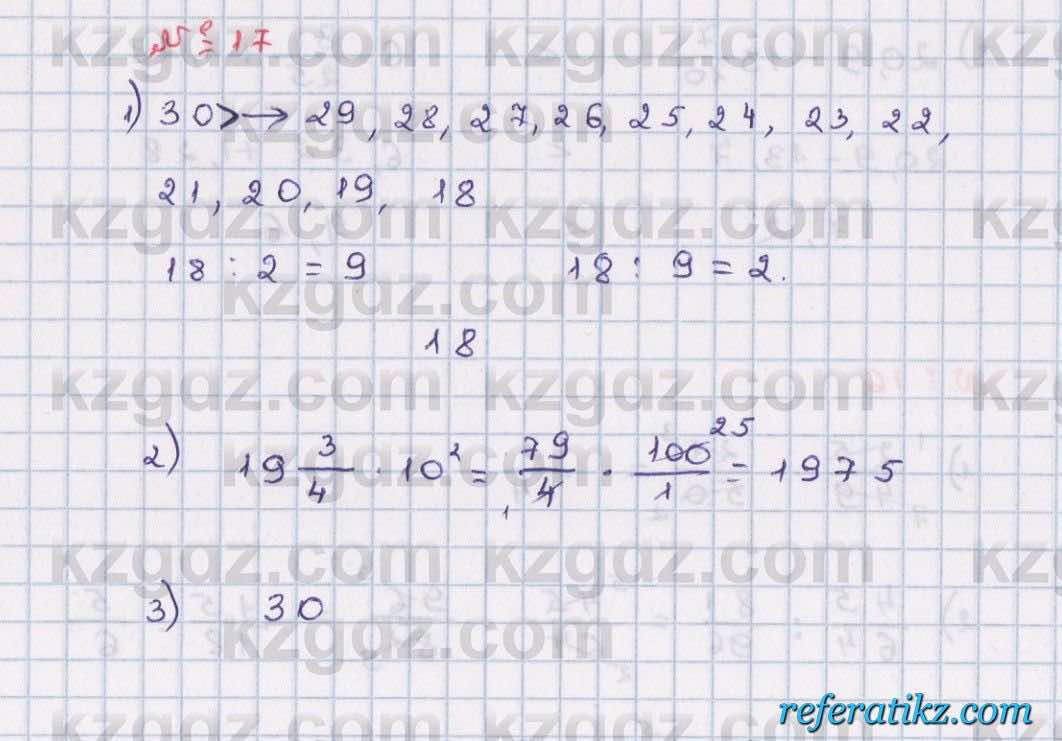 № 17
1) 30 > → 29, 28, 27, 26, 25, 24, 23, 22,
21, 20, 19, 18
18 : 2 = 9 18 : 9 = 2.
18
2) 19 3/4 · 10² = 79/4 · 100/1 = 1975
1 25
3) 30
kzgdz.com
referatikz.com